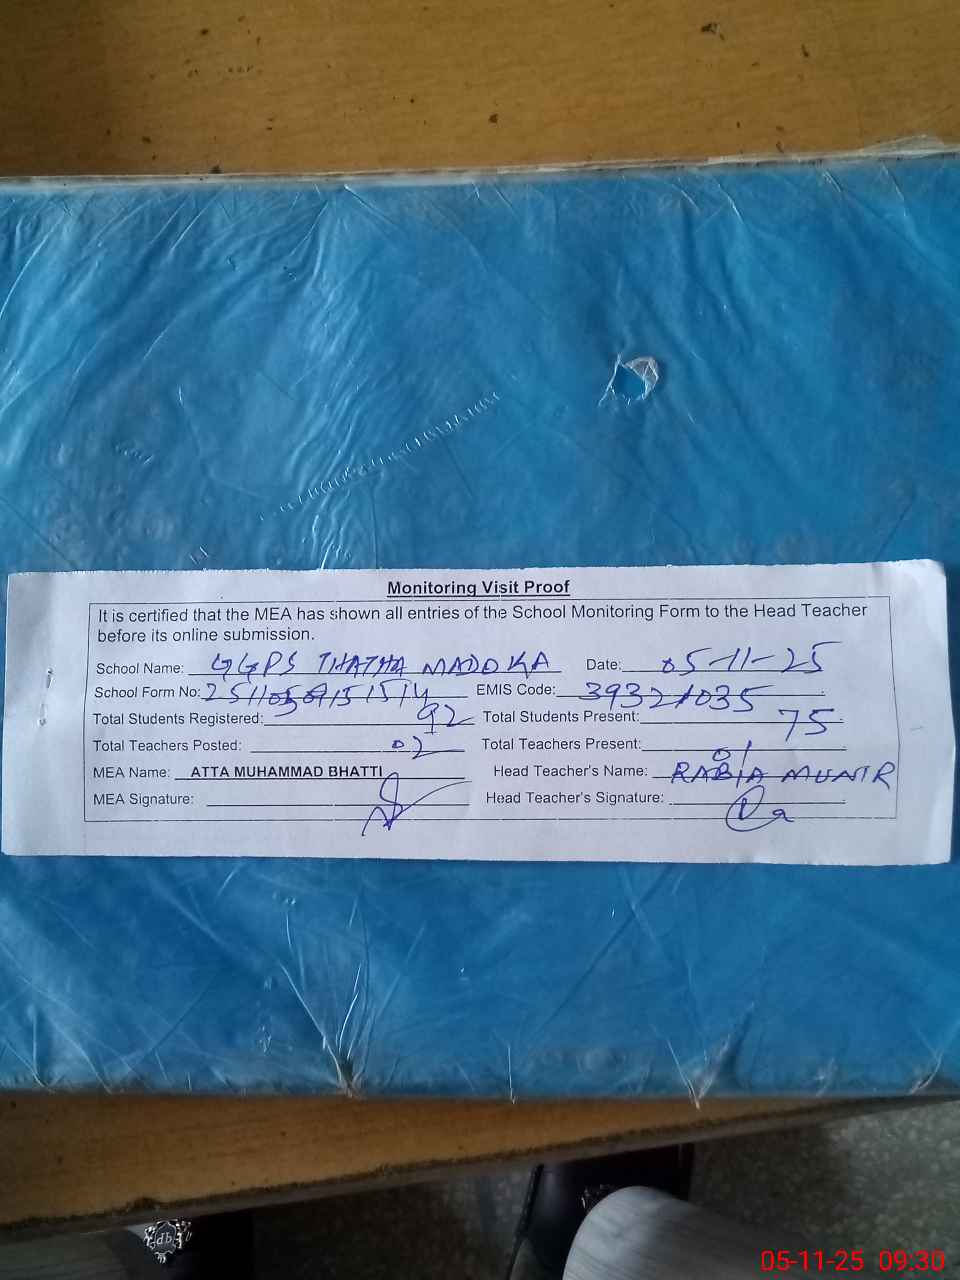 Monitoring Visit Proof
It is certified that the MEA has shown all entries of the School Monitoring Form to the Head Teacher
before its online submission.
School Name: GGPS THATHA MADOKA Date: 05-11-25
School Form No: EMIS Code: 39321035
Total Students Registered: 92 Total Students Present: 75
Total Teachers Posted: 02 Total Teachers Present: 01
MEA Name: ATTA MUHAMMAD BHATTI Head Teacher's Name: RABIA MUNIR
MEA Signature: Head Teacher's Signature:
db
05-11-25 09:30